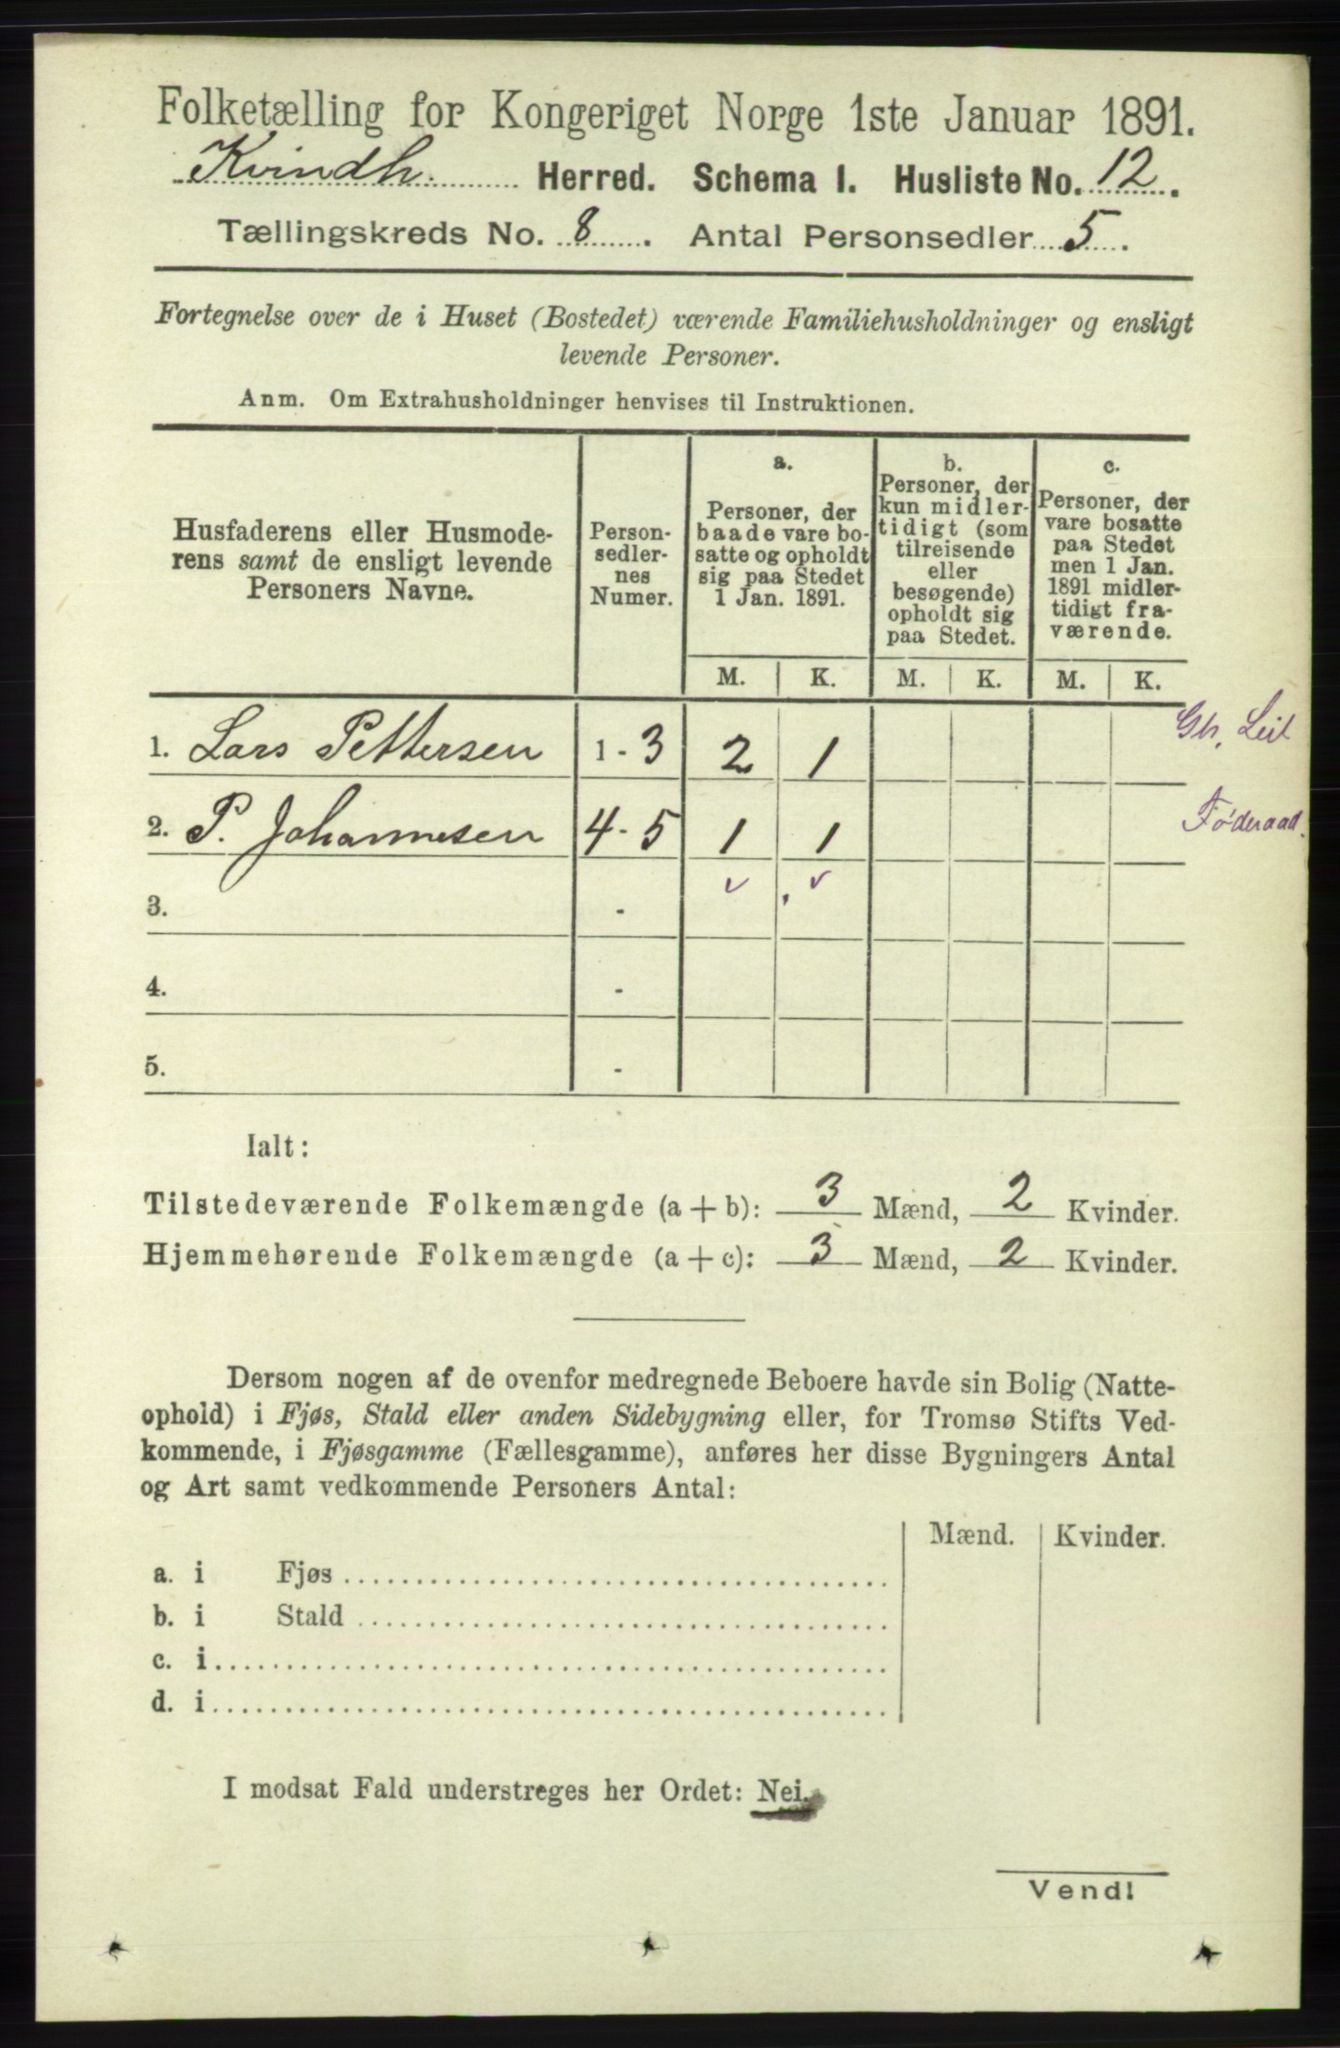 Folketælling for Kongeriget Norge 1ste Januar 1891.
Kvindh. Herred. Schema I. Husliste No. 12.
Tællingskreds No. 8. Antal Personsedler 5.
Fortegnelse over de i Huset (Bostedet) værende Familiehusholdninger og ensligt
levende Personer.
Anm. Om Extrahusholdninger henvises til Instruktionen.
Husfaderens eller Husmode-
rens samt de ensligt levende
Personers Navne.
Person-
sedler-
nes
Numer.
a.
Personer, der
baade vare bo-
satte og opholdt
sig paa Stedet
1 Jan. 1891.
b.
Personer, der
kun midler-
tidigt (som
tilreisende
eller
besøgende)
opholdt sig
paa Stedet.
c.
Personer, der
vare bosatte
paa Stedet
men 1 Jan.
1891 midler-
tidigt fra-
værende.
M. K. M. K. M. K.
1. Lars Pettersen 1 - 3 2 1 Gb, Leil
2. P. Johannesen 4 - 5 1 1 Føderaad.
3. -
4. -
5. -
Ialt:
Tilstedeværende Folkemængde (a + b): 3 Mænd, 2 Kvinder.
Hjemmehørende Folkemængde (a + c): 3 Mænd, 2 Kvinder.
Dersom nogen af de ovenfor medregnede Beboere havde sin Bolig (Natte-
ophold) i Fjøs, Stald eller anden Sidebygning eller, for Tromsø Stifts Ved-
kommende, i Fjøsgamme (Fællesgamme), anføres her disse Bygningers Antal
og Art samt vedkommende Personers Antal:
Mænd. Kvinder.
a. i Fjøs
b. i Stald
c. i
d. i
I modsat Fald understreges her Ordet: Nei.
Vend!